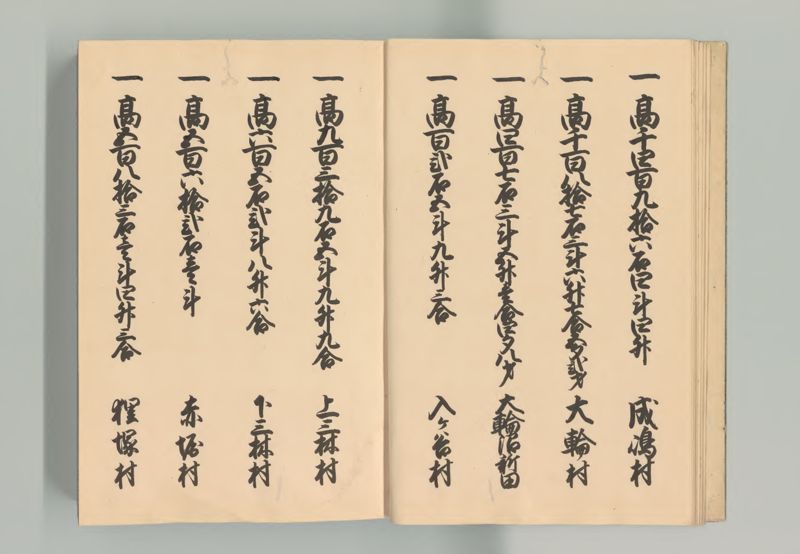 一 高千四百九拾六石四斗四升 成嶋村
一 高千百八拾七石三斗六升七合五勺弐才 大輪村
一 高四百七石三斗五升壱合四夕八才 大輪沼新田
一 高百弐石五斗九升三合 入ヶ谷村
一 高九百三拾九石五斗九升九合 上三林村
一 高六百五石弐斗八升六合 下三林村
一 高五百六拾弐石壱斗 赤堀村
一 高五百八拾三石壱斗四升三合 狸塚村